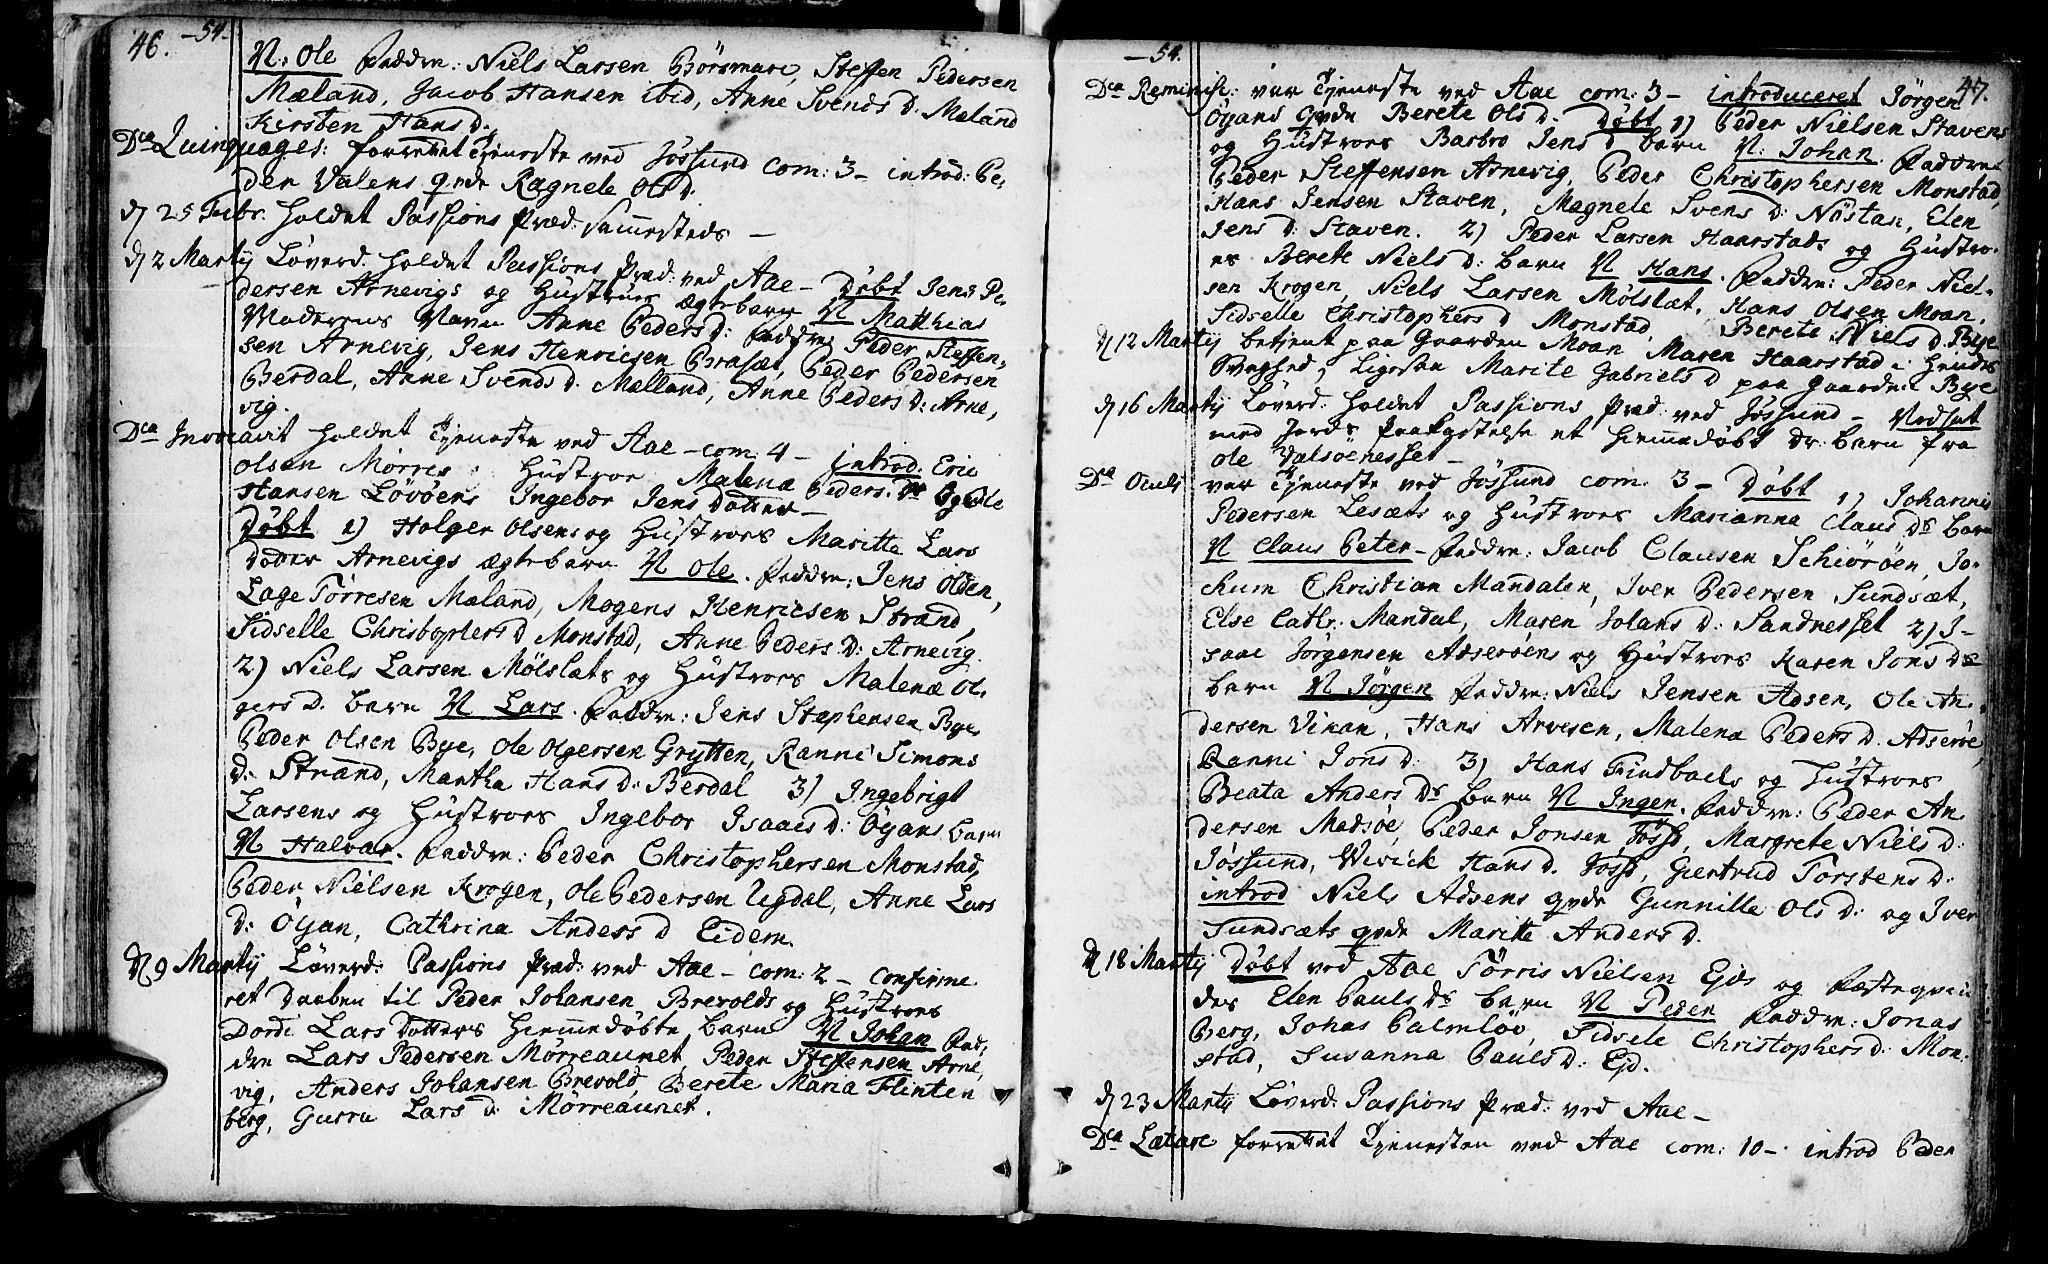 46. -54-
N: Ole Faddre: Niels Larsen Börsmare, Steffen Pedersen
Mæland, Jacob Hansen ibid, Anne Svends D: Mæland
Kirsten Hans D.
Dca Quinquages: forrettet Tjeneste ved Jössund com: 3 - introd: Pe,
der Valens qvde Ragnele Ols D.
d 25 Febr. holdet Passions Præd: sammesteds -
d 2 Martij Löverd. holdet Passions Præd: ved Aae - Döbt Jens Pe,
dersen Arnevigs og Hustrues ægtebarn N Matthias
Moderens Navn Anne Peders D: Faddre Peder Steffen,
sen Arnevig, Jens Henricsen Brasæt, Peder Pedersen
Berdal, Anne Svends D. Mælland, Anne Peders D: Arne,
vig.
Dca Invocavit holdet Tjeneste ved Aae - com 4 - introd. Eric
Olsen Mörres Hustroe Malena Peders. Dr Ogsdle
Hansen Lövöens Ingebor Jens Datter -
Döbt 1) Holger Olsens og Hustroes Maritte Lars
Dotter Arnevigs ægtebarn N Ole. Faddre: Jens Olden,
Lage Törresen Mæland, Mogens Henricsen Strand,
Sidselle Christophers D Monstad, Anne Peders D: Arnevig.
2) Niels Larsen Mölslæts og Hustroes Malenæ Ol,
gers D. barn N Lars. Faddre: Jens Stephensen Bye,
Peder Olsen Bye, Ole Olgersen Grytten, Ranni Simons
D: Strand, Martha Hans D: Berdal 3) Ingebrigt
Larsens og Hustroes Ingebor Isaacs D: Öyans barn
N Halvar. Faddre: Peder Christophersen Monstad,
Peder Nielsen Krogen, Ole Pedersen Ugdal, Anne Lars
D: Öyan, Cathrina Anders D Eidem.
d 9 Martij Löverd: Passions Præd: ved Aae - com: 2 - Confirme
ret Daaben til Peder Johansen Brevolds og Hustroes
Dordi Lars Dotters hiemmedöbte barn N Johan Fad,
dre Lars Pedersen Mörreaunet, Peder Steffensen Arne,
vig, Anders Johansen Brevold, Berete Maria Flinten
berg, Gurru Lars D: Mörreaunet.
-54. 47.
Dca Reminisc: var Tjeneste ved Aae com: 3 - introduceret Jörgen
Öyans qvde Berete Ols D. Döbt 1) Peder Nielsen Stavens
og Hustroes Barbro Jens D barn N: Johan. Faddre
Peder Steffensen Arnevig, Peder Christophersen Monstad,
Hans Jensen Staven, Magnele Svens D: Nöstan, Elen
Jens D: Staven. 2) Peder Larsen Haarstads og Hustro,
es Berete Niels D: barn N Hans. Faddre: Peder Niel,
sen Krogen, Niels Larsen Mölslæt, Hans Olsen Moan,
Sidselle Christophers D Monstad, Berete Niels D. Bye
d 12 Martij betient paa Gaarden Moan Maren Haarstad i hendes
Svaghed, Ligesaa Marite Gabriels D paa Gaarden Bye
d 16 Martij Löverd: holdet Passions Præd: ved Jössund - Vedset
med Jords Paakastelse et hiemmedöbt Dr: barn fra
Ole Valsöenesset -
Dca Oculi var Tjeneste ved Jössund com: 3 - Döbt 1) Johannis
Pedersen Lesæts og Hustroes Marianna Claus Ds barn
N Claus Peter - Faddre: Jacob Clausen Schiöröen, Jo,
chum Christian Mandalen, Iver Pedersen Sundsæt,
Else Cathr. Mandal, Maren Johans D: Sandnesset 2) I-
saac Jörgensen Adseröens og Hustroes Karen Jons Ds
barn N Jörgen Faddre: Niels Jensen Adsen, Ole An,
dersen Vikan, Hans Arvesen, Malena Peders D. Adseröe,
Ranni Jons D: 3) Hans Findbaels og Hustroes
Beata Anders Ds barn N Ingen. Faddre: Peder An,
dersen Madsöe, Peder Jonsen Jössd, Margrete Niels D:
Jössund, Wivick Hans D. Jössd, Giertrud Torstens D:
introd Niels Adsens qvde Gunnille Ols D: og Iver
Sundsæts qvde Maritte Anders D.
d 18 Martij Döbt ved Aae Törris Nielsen Ejds og Fæsteqvin
des Elen Pauls Ds barn N Peder Faddre: Jonas
Berg, Johas Palmlöv, Sidsele Christophers D: Mon,
stad, Susanna Pauls D: Ejd.
d 23 Martij Löverd: Passions Præd: ved Aae -
Dca Lætare forrettet Tjenesten ved Aae com: 10 - introd Peder